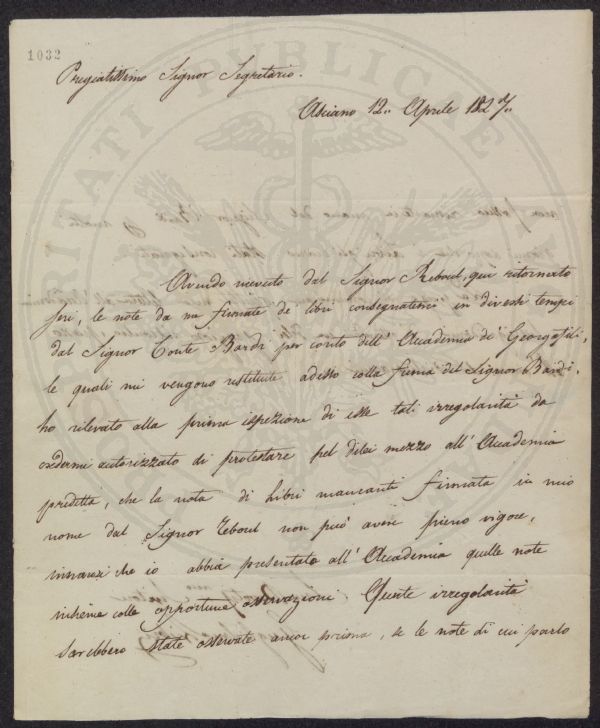 1032
PROSPERITATI PUBLICAE
Pregiatissimo Signor Segretario.
Asciano 12.. Aprile 1827..
Avendo ricevuto dal Signor Reboul, qui ritornato
jeri, le note da me firmate de' libri consegnatemi in diversi tempi
dal Signor Conte Bardi per conto dell' Accademia de' Georgofili,
le quali mi vengono restituite adesso colla firma del Signor Bardi,
ho rilevato alla prima ispezione di esse tali irregolarità da
credermi autorizzato di protestare pel dilei mezzo all' Accademia
predetta, che la nota di Libri mancanti firmata in mio
nome dal Signor Reboul non può avere pieno vigore,
innanzi che io abbia presentato all' Accademia quelle note
insieme colle opportune osservazioni. Queste irregolarità
sarebbero state osservate ancor prima, se le note di cui parlo